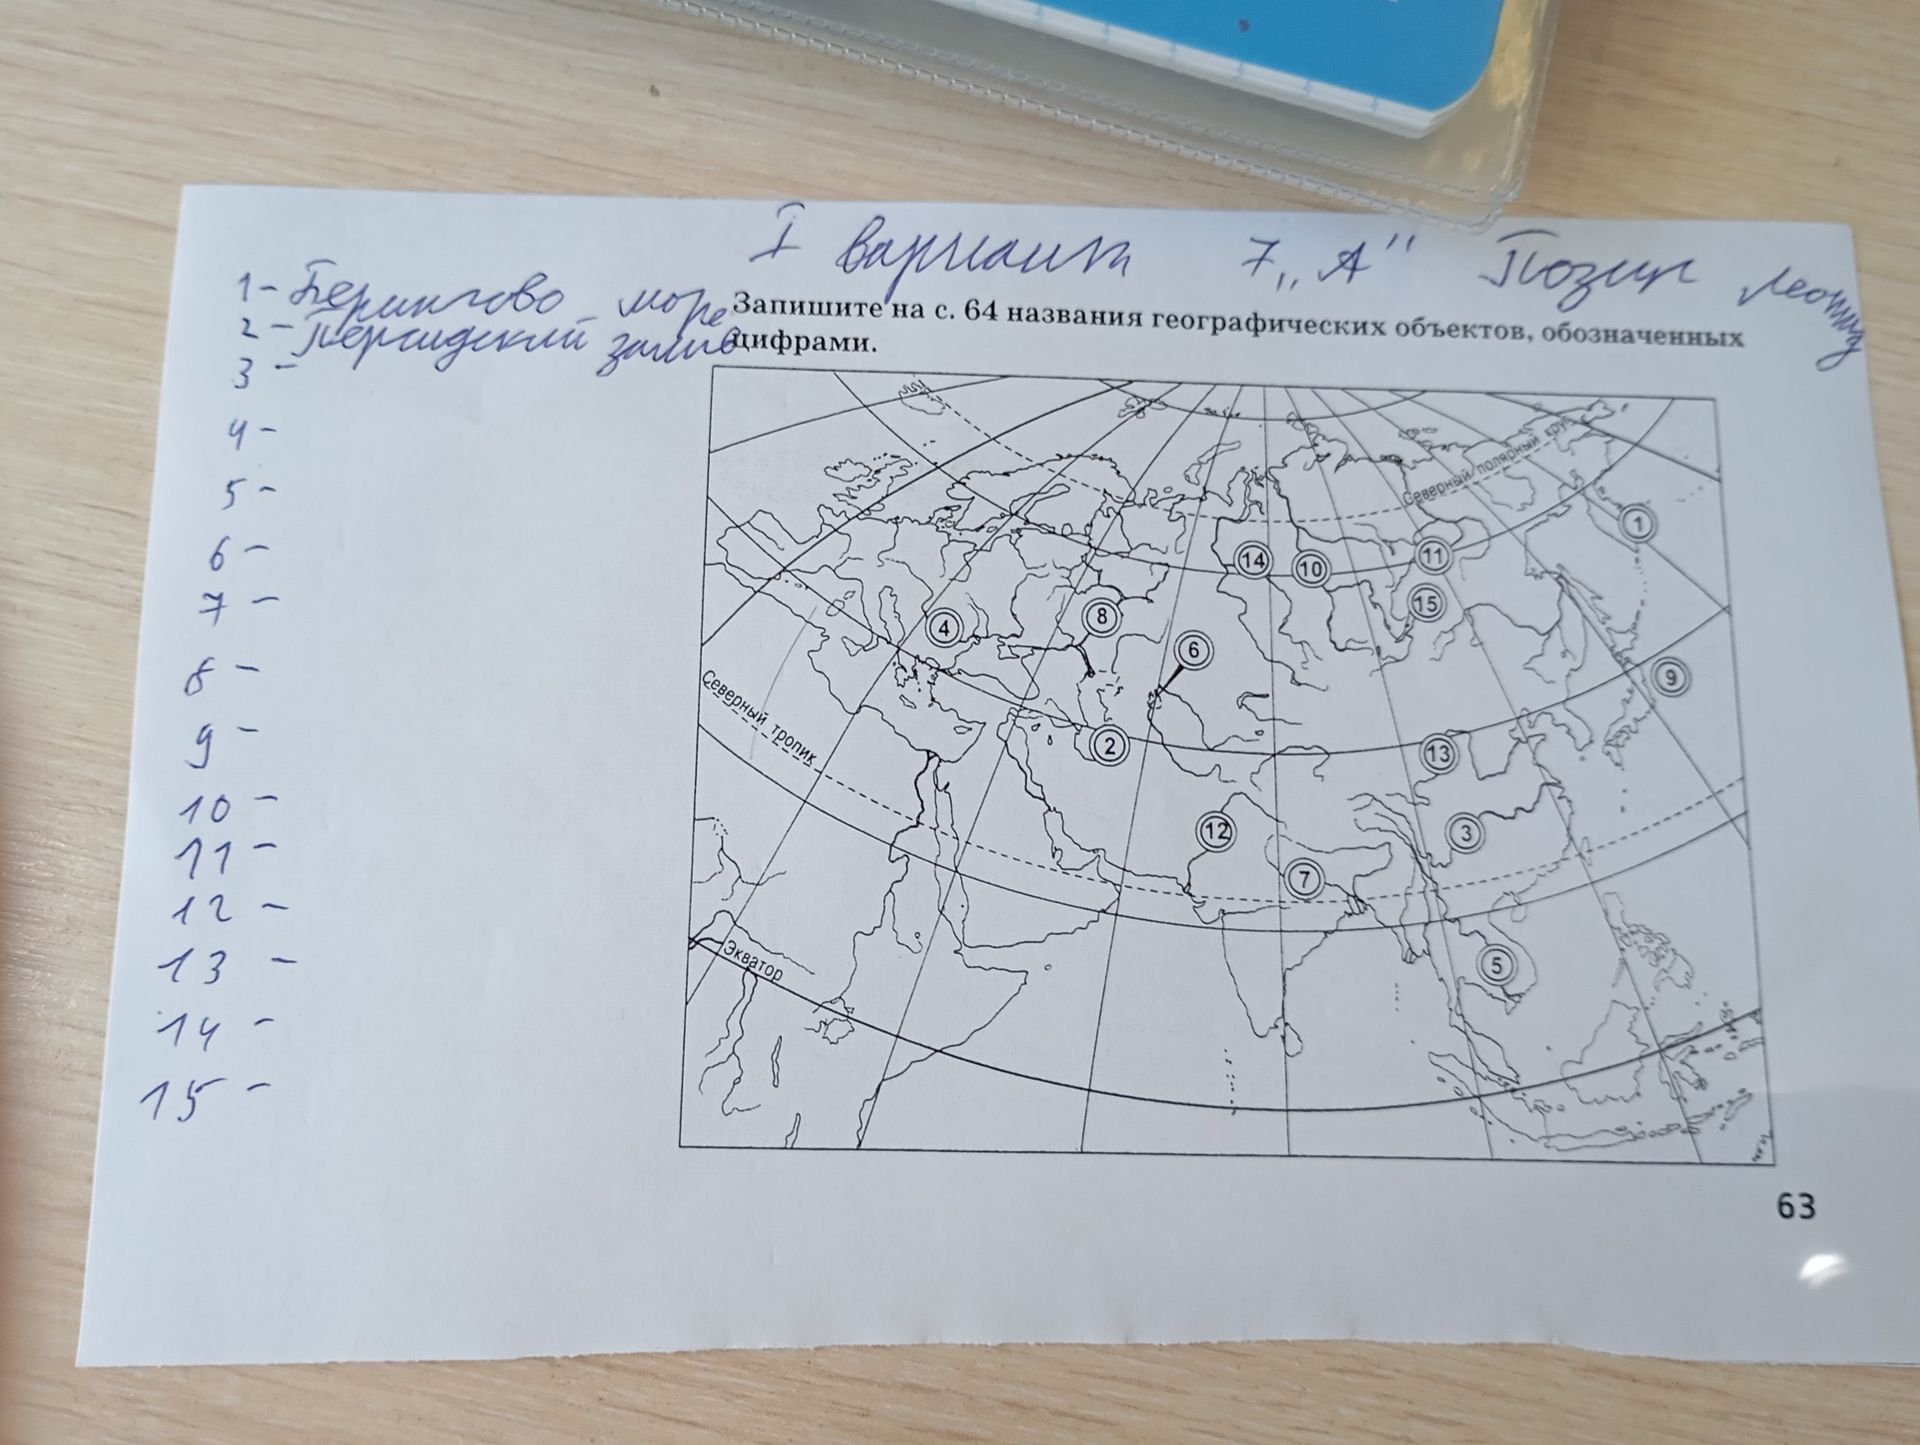 I вариант 7 „А“ Позик Леонид
1 - Берингово море
2 - Персидский залив
3 -
4 -
5 -
6 -
7 -
8 -
9 -
10 -
11 -
12 -
13 -
14 -
15 -
Запишите на с. 64 названия географических объектов, обозначенных
цифрами.
Северный полярный круг
1
14
10
11
15
4
8
6
9
Северный тропик
2
13
12
3
7
5
Экватор
63